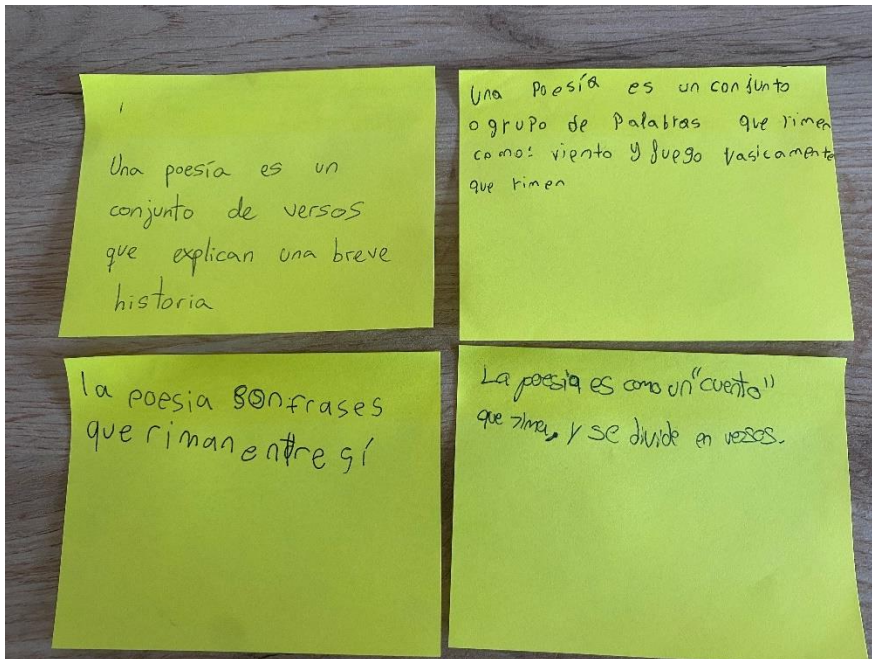 Una poesía es un
conjunto de versos
que explican una breve
historia
Una Poesía es un conjunto
o grupo de Palabras que rimen
como: viento y fuego vasicamente
que rimen
la poesia son frases
que riman entre sí
La poesia es como un "cuento"
que rima, y se divide en versos.